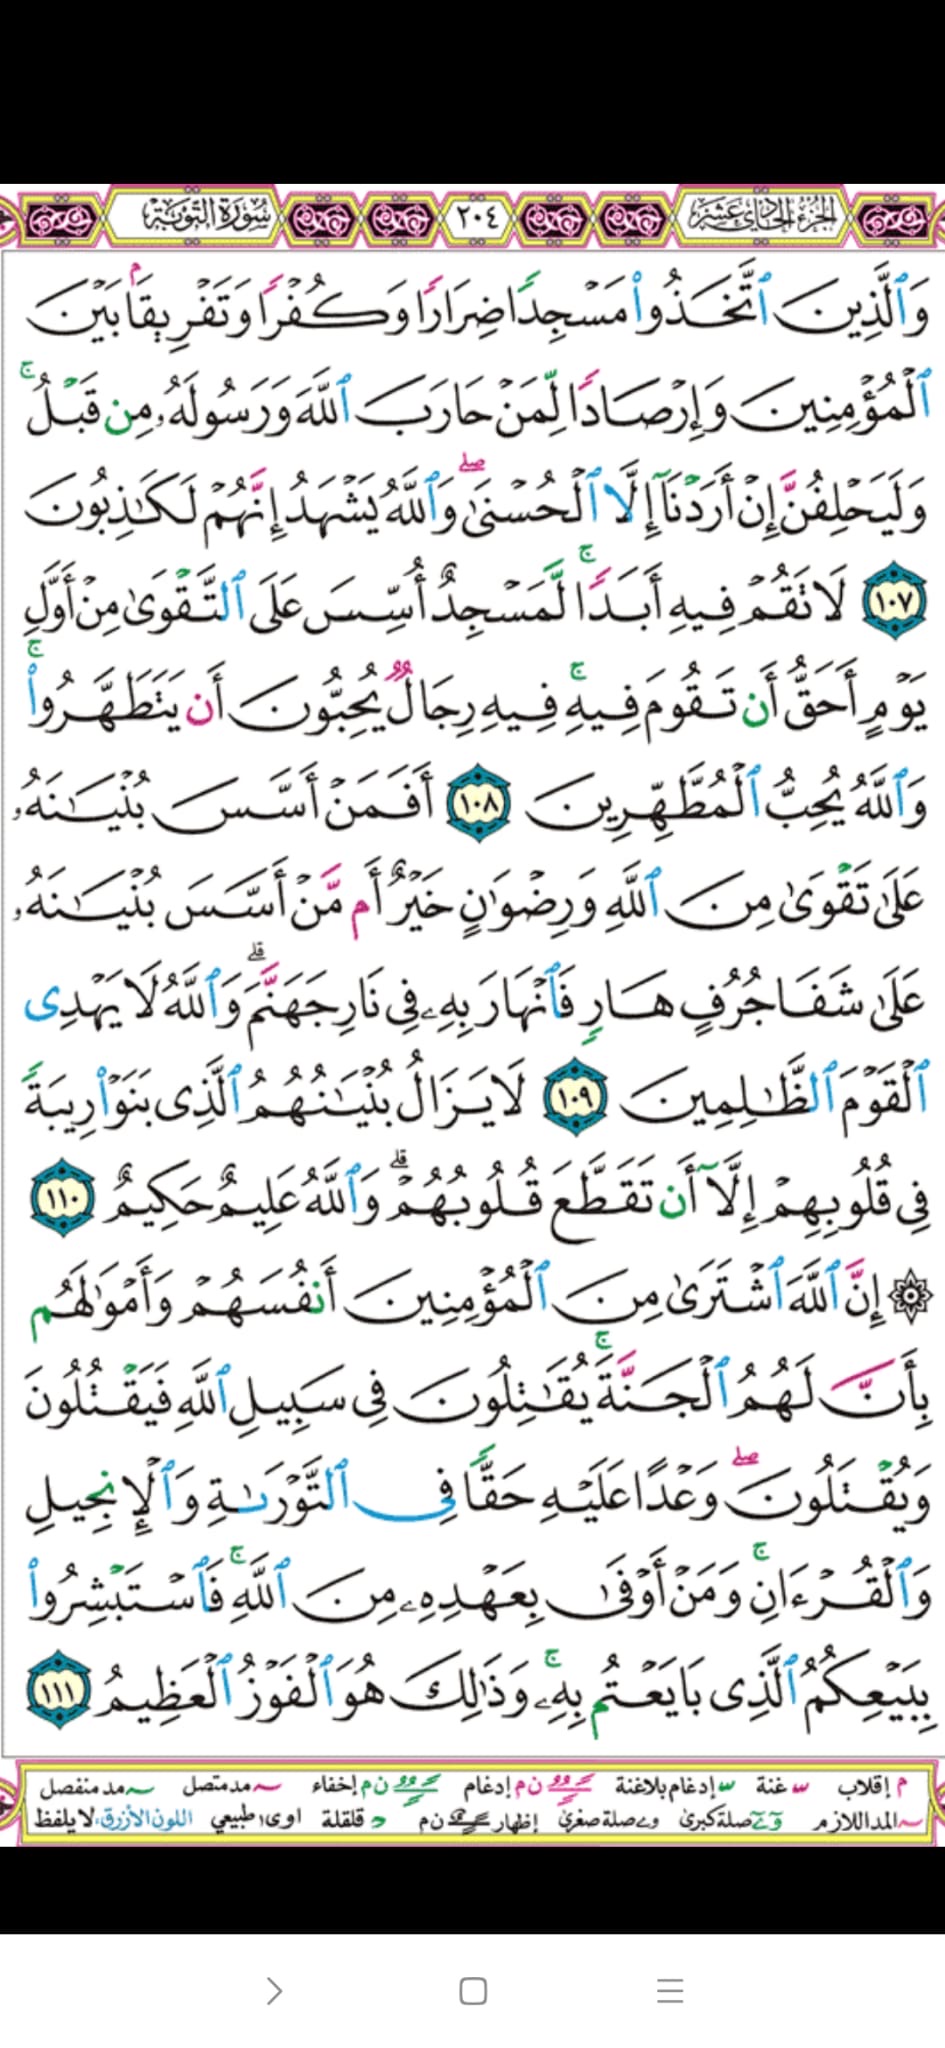 الجزء الحادي عشر ٢٠٤ سورة التوبة
وَٱلَّذِينَ ٱتَّخَذُواْ مَسۡجِدٗا ضِرَارٗا وَكُفۡرٗا وَتَفۡرِيقَۢا بَيۡنَ
ٱلۡمُؤۡمِنِينَ وَإِرۡصَادٗا لِّمَنۡ حَارَبَ ٱللَّهَ وَرَسُولَهُۥ مِن قَبۡلُۚ
وَلَيَحۡلِفُنَّ إِنۡ أَرَدۡنَآ إِلَّا ٱلۡحُسۡنَىٰۖ وَٱللَّهُ يَشۡهَدُ إِنَّهُمۡ لَكَٰذِبُونَ
١٠٧ لَا تَقُمۡ فِيهِ أَبَدٗاۚ لَّمَسۡجِدٌ أُسِّسَ عَلَى ٱلتَّقۡوَىٰ مِنۡ أَوَّلِ
يَوۡمٍ أَحَقُّ أَن تَقُومَ فِيهِۚ فِيهِ رِجَالٞ يُحِبُّونَ أَن يَتَطَهَّرُواْۚ
وَٱللَّهُ يُحِبُّ ٱلۡمُطَّهِّرِينَ ١٠٨ أَفَمَنۡ أَسَّسَ بُنۡيَٰنَهُۥ
عَلَىٰ تَقۡوَىٰ مِنَ ٱللَّهِ وَرِضۡوَٰنٍ خَيۡرٌ أَم مَّنۡ أَسَّسَ بُنۡيَٰنَهُۥ
عَلَىٰ شَفَا جُرُفٍ هَارٖ فَٱنۡهَارَ بِهِۦ فِي نَارِ جَهَنَّمَۗ وَٱللَّهُ لَا يَهۡدِي
ٱلۡقَوۡمَ ٱلظَّٰلِمِينَ ١٠٩ لَا يَزَالُ بُنۡيَٰنُهُمُ ٱلَّذِي بَنَوۡاْ رِيبَةٗ
فِي قُلُوبِهِمۡ إِلَّآ أَن تَقَطَّعَ قُلُوبُهُمۡۗ وَٱللَّهُ عَلِيمٌ حَكِيمٌ ١١٠
۞ إِنَّ ٱللَّهَ ٱشۡتَرَىٰ مِنَ ٱلۡمُؤۡمِنِينَ أَنفُسَهُمۡ وَأَمۡوَٰلَهُم
بِأَنَّ لَهُمُ ٱلۡجَنَّةَۚ يُقَٰتِلُونَ فِي سَبِيلِ ٱللَّهِ فَيَقۡتُلُونَ
وَيُقۡتَلُونَۖ وَعۡدًا عَلَيۡهِ حَقّٗا فِي ٱلتَّوۡرَىٰةِ وَٱلۡإِنجِيلِ
وَٱلۡقُرۡءَانِۚ وَمَنۡ أَوۡفَىٰ بِعَهۡدِهِۦ مِنَ ٱللَّهِۚ فَٱسۡتَبۡشِرُواْ
بِبَيۡعِكُمُ ٱلَّذِي بَايَعۡتُم بِهِۦۚ وَذَٰلِكَ هُوَ ٱلۡفَوۡزُ ٱلۡعَظِيمُ ١١١
م إقلاب غنة إدغام بلاغنة ن م إدغام ن م إخفاء مد متصل مد منفصل
المد اللازم صلة كبرى صلة صغرى إظهار ن م قلقلة اوى طبيعي اللون الأزرق لا يلفظ